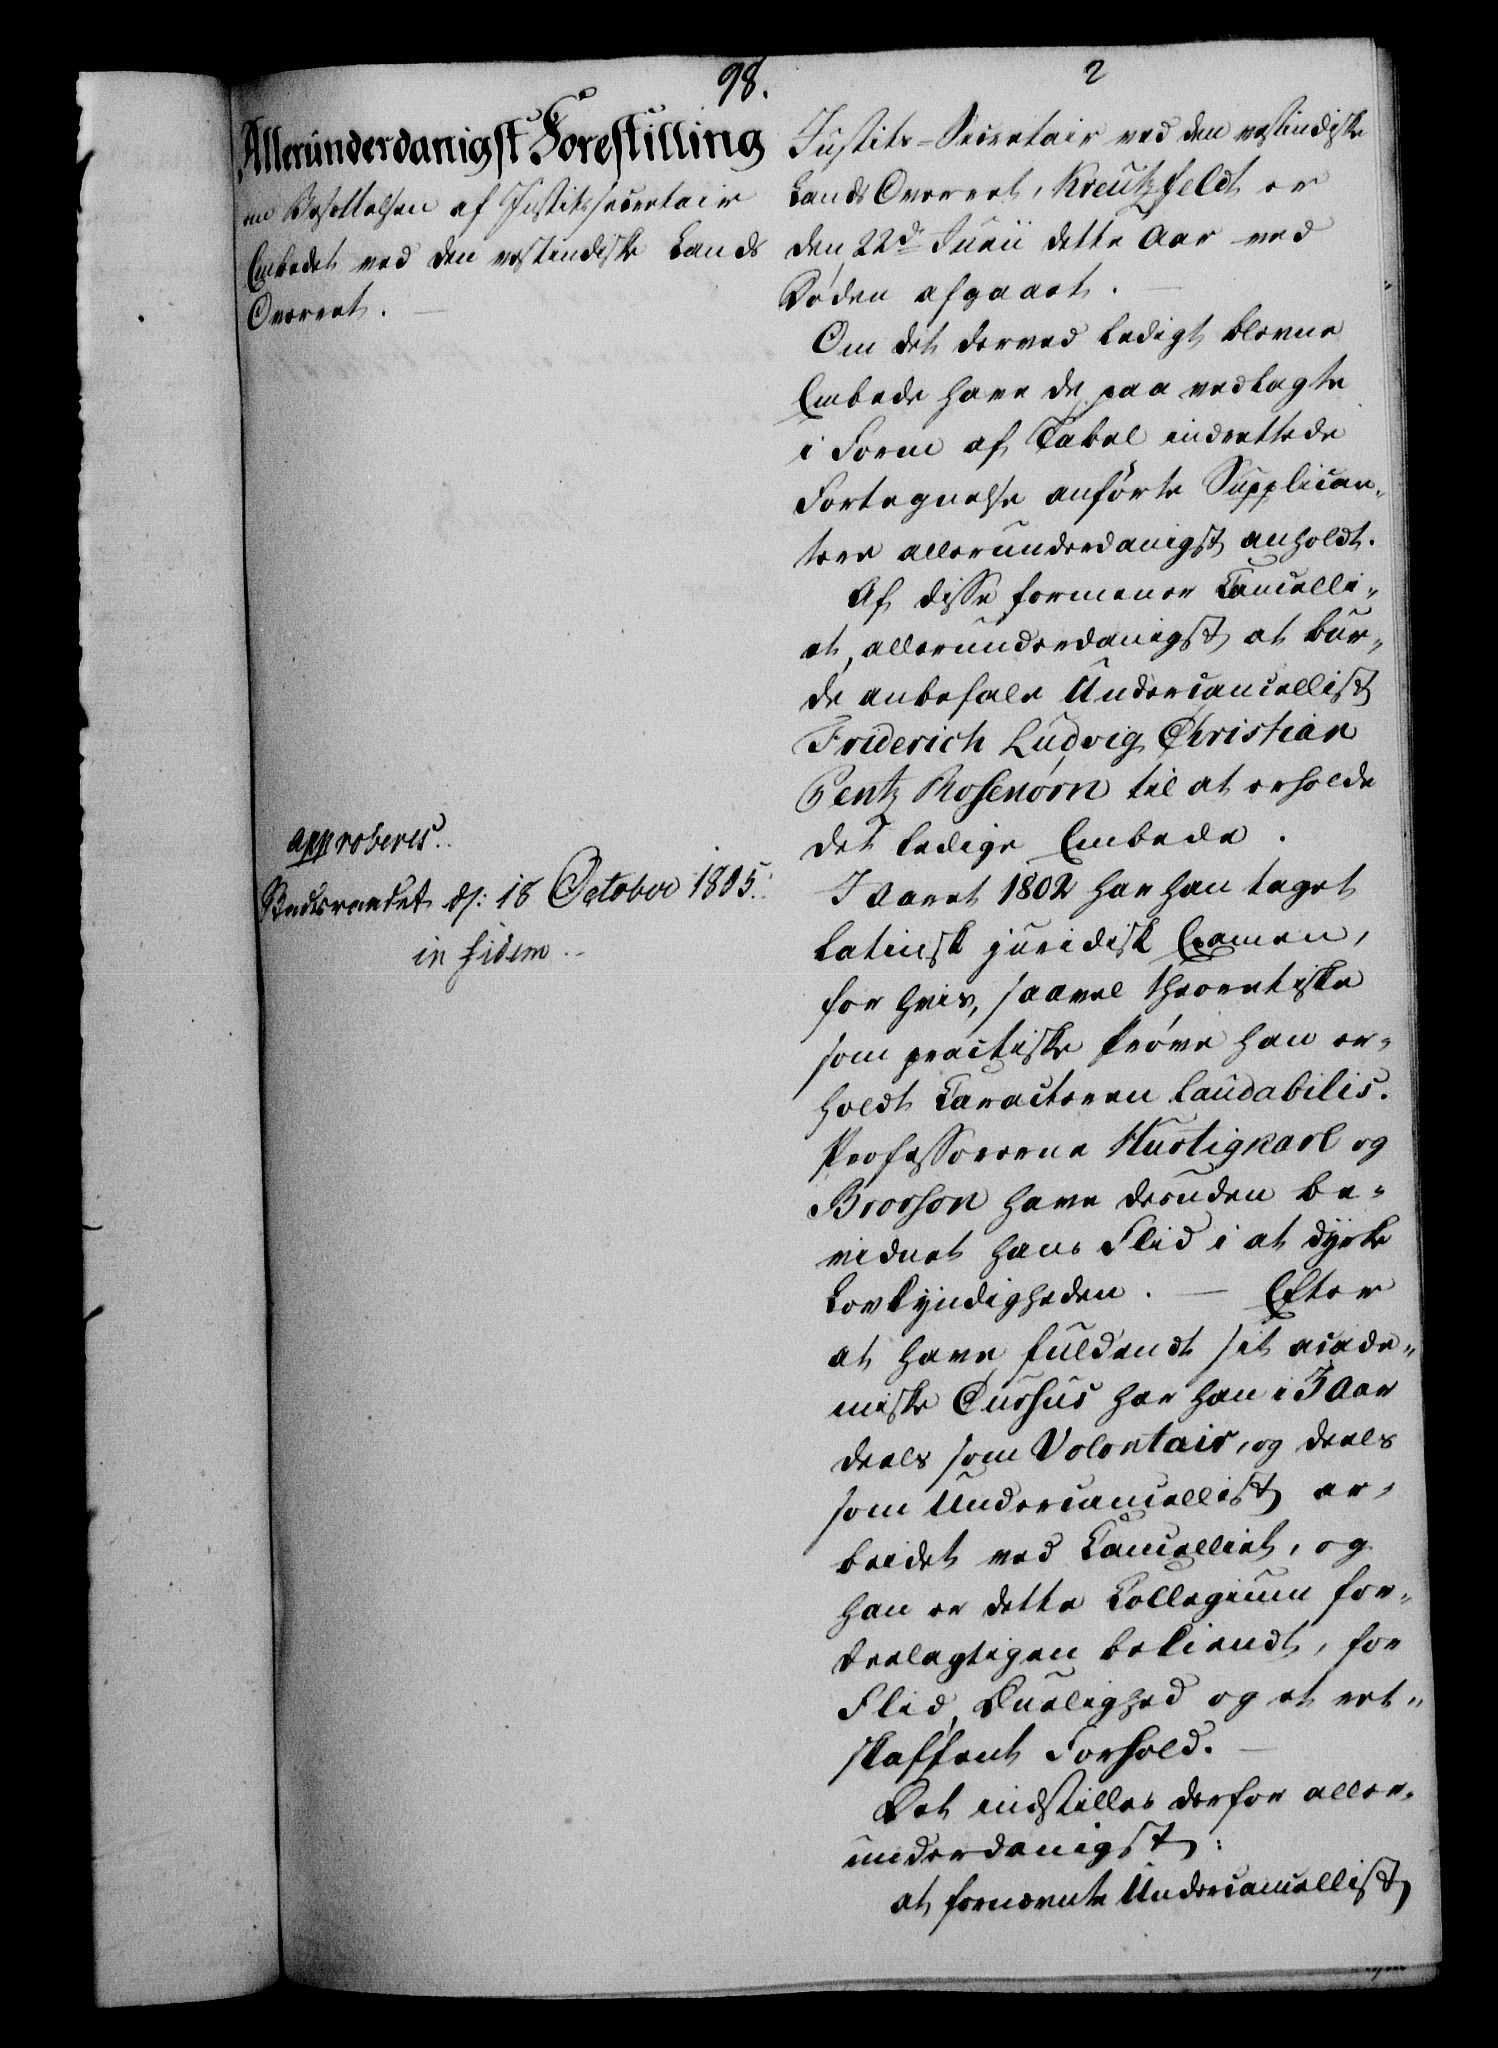 98.
2
Allerunderdanigst Forestilling
om Besættelsen af Justitssecretair
Embedet ved den vestindiske Lands
Overret.
approberes.
Bernstorff
d: 18 October 1805.
in fidem
Justits-Secretair ved den vestindiske
Lands Overret, Kreutzfeldt er
den 22de Junii dette Aar ved
Døden afgaaet.
Om det derved ledigt blevne
Embede have de paa vedlagte
i Form af Tabel indrettede
Fortegnelse anførte Supplican-
tere allerunderdanigst anholdt.
Af disse formener Cancelli-
et, allerunderdanigst at bur-
de anbefale Undercancellist
Friderich Ludvig Christian
Pentz Rosenørn til at erholde
det ledige Embede.
I Aaret 1802 har han taget
latinsk juridisk Examen,
for hvis, saavel theoretiske
som practiske Prøve han er-
holdt Caracteren laudabilis.
Professorerne Hurtigkarl og
Brorson have desuden be-
vidnet hans Flid i at dyrke
Lovkyndigheden. — Efter
at have fuldendt sit acade-
miske Cursus har han i 3 Aar
deels som Volontair, og deels
som Undercancellist ar-
beidet ved Cancelliet, og
han er dette Collegium for-
deelagtigen bekiendt, for
Flid, Duelighed og et ret-
skaffent Forhold. —
Det indstilles derfor aller-
underdanigst:
at fornævnte Undercancellist